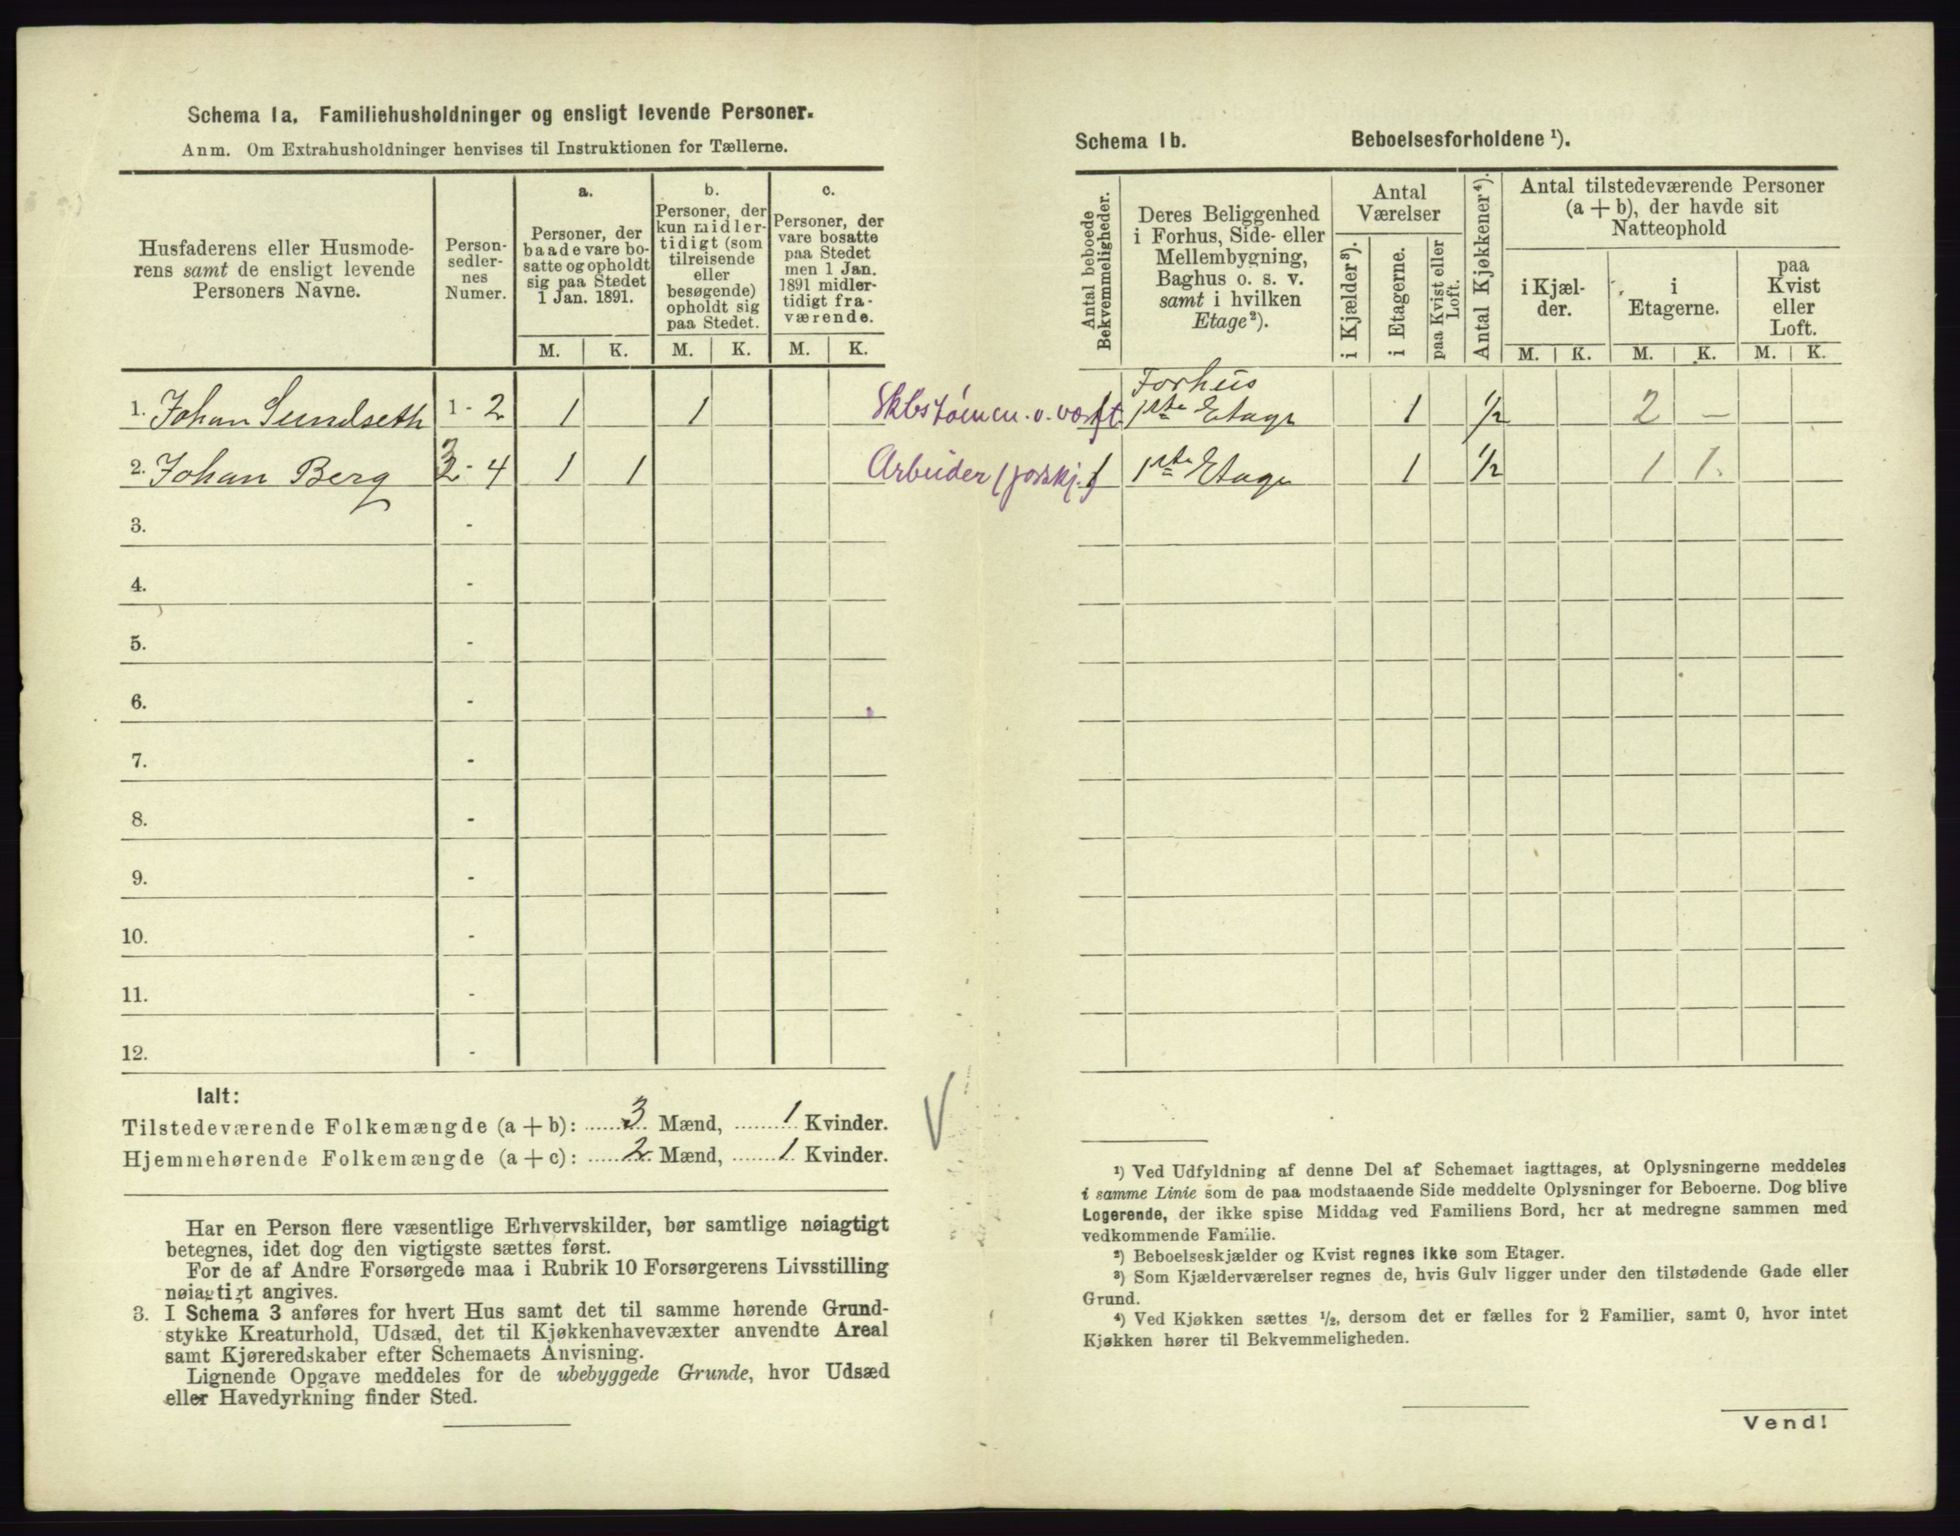 Schema 1a. Familiehusholdninger og ensligt levende Personer.
Anm. Om Extrahusholdninger henvises til Instruktionen for Tællerne.
Husfaderens eller Husmode-
rens samt de ensligt levende
Personers Navne.
Person-
sedler-
nes
Numer.
a.
Personer, der
baade vare bo-
satte og opholdt
sig paa Stedet
1 Jan. 1891.
b.
Personer, der
kun midler-
tidigt (som
tilreisende
eller
besøgende)
opholdt sig
paa Stedet.
c.
Personer, der
vare bosatte
paa Stedet
men 1 Jan.
1891 midler-
tidigt fra-
værende.
M. K. M. K. M. K.
1. Johan Sundseth 1 - 2 1 1
2. Johan Berg 3 - 4 1 1
3. -
4. -
5. -
6. -
7. -
8. -
9. -
10. -
11. -
12. -
Ialt:
Tilstedeværende Folkemængde (a + b): 3 Mænd, 1 Kvinder.
Hjemmehørende Folkemængde (a + c): 2 Mænd, 1 Kvinder.
Har en Person flere væsentlige Erhvervskilder, bør samtlige nøiagtigt
betegnes, idet dog den vigtigste sættes først.
For de af Andre Forsørgede maa i Rubrik 10 Forsørgerens Livsstilling
nøiagtigt angives.
3. I Schema 3 anføres for hvert Hus samt det til samme hørende Grund-
stykke Kreaturhold, Udsæd, det til Kjøkkenhavevæxter anvendte Areal
samt Kjøreredskaber efter Schemaets Anvisning.
Lignende Opgave meddeles for de ubebyggede Grunde, hvor Udsæd
eller Havedyrkning finder Sted.
Schema 1b. Beboelsesforholdene ¹).
Antal beboede
Bekvemmeligheder.
Deres Beliggenhed
i Forhus, Side- eller
Mellembygning,
Baghus o. s. v.
samt i hvilken
Etage²).
Antal
Værelser
i Kjælder³).
i Etagerne.
paa Kvist eller
Loft.
Antal Kjøkkener⁴).
Antal tilstedeværende Personer
(a + b), der havde sit
Natteophold
i Kjæl-
der.
i
Etagerne.
paa
Kvist
eller
Loft.
M. K. M. K. M. K.
Forhus
1 1ste Etage 1 1/2 2 –
Arbeider 1 1ste Etage 1 1/2 1 1
¹) Ved Udfyldning af denne Del af Schemaet iagttages, at Oplysningerne meddeles
i samme Linie som de paa modstaaende Side meddelte Oplysninger for Beboerne. Dog blive
Logerende, der ikke spise Middag ved Familiens Bord, her at medregne sammen med
vedkommende Familie.
²) Beboelseskjælder og Kvist regnes ikke som Etager.
³) Som Kjælderværelser regnes de, hvis Gulv ligger under den tilstødende Gade eller
Grund.
⁴) Ved Kjøkken sættes ½, dersom det er fælles for 2 Familier, samt 0, hvor intet
Kjøkken hører til Bekvemmeligheden.
Vend!